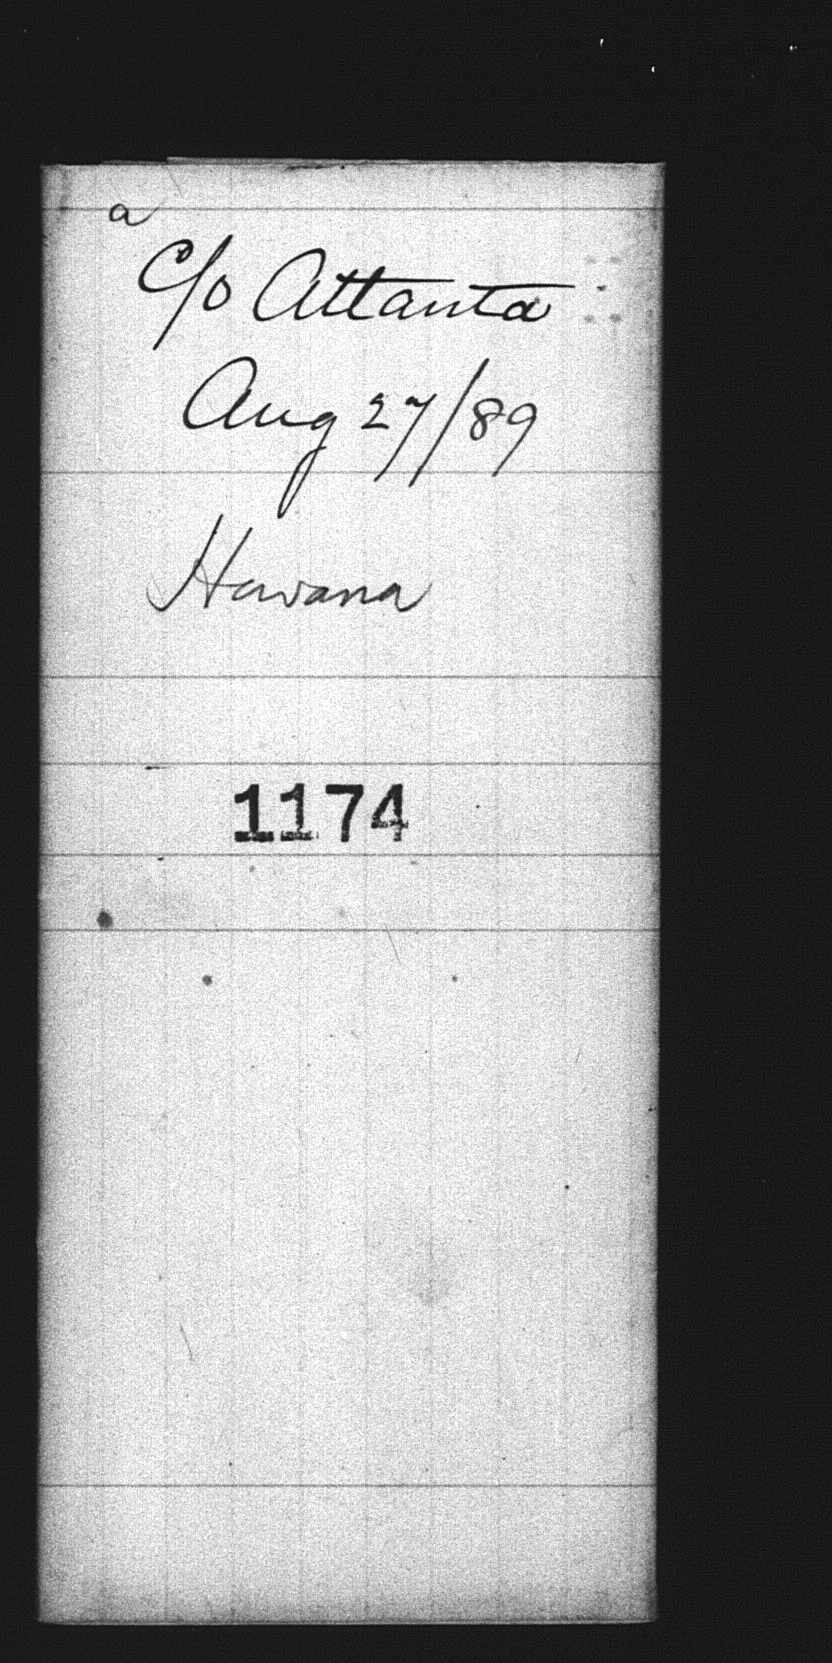 a
C/o Attanta
Aug 27/89
Havana
1174